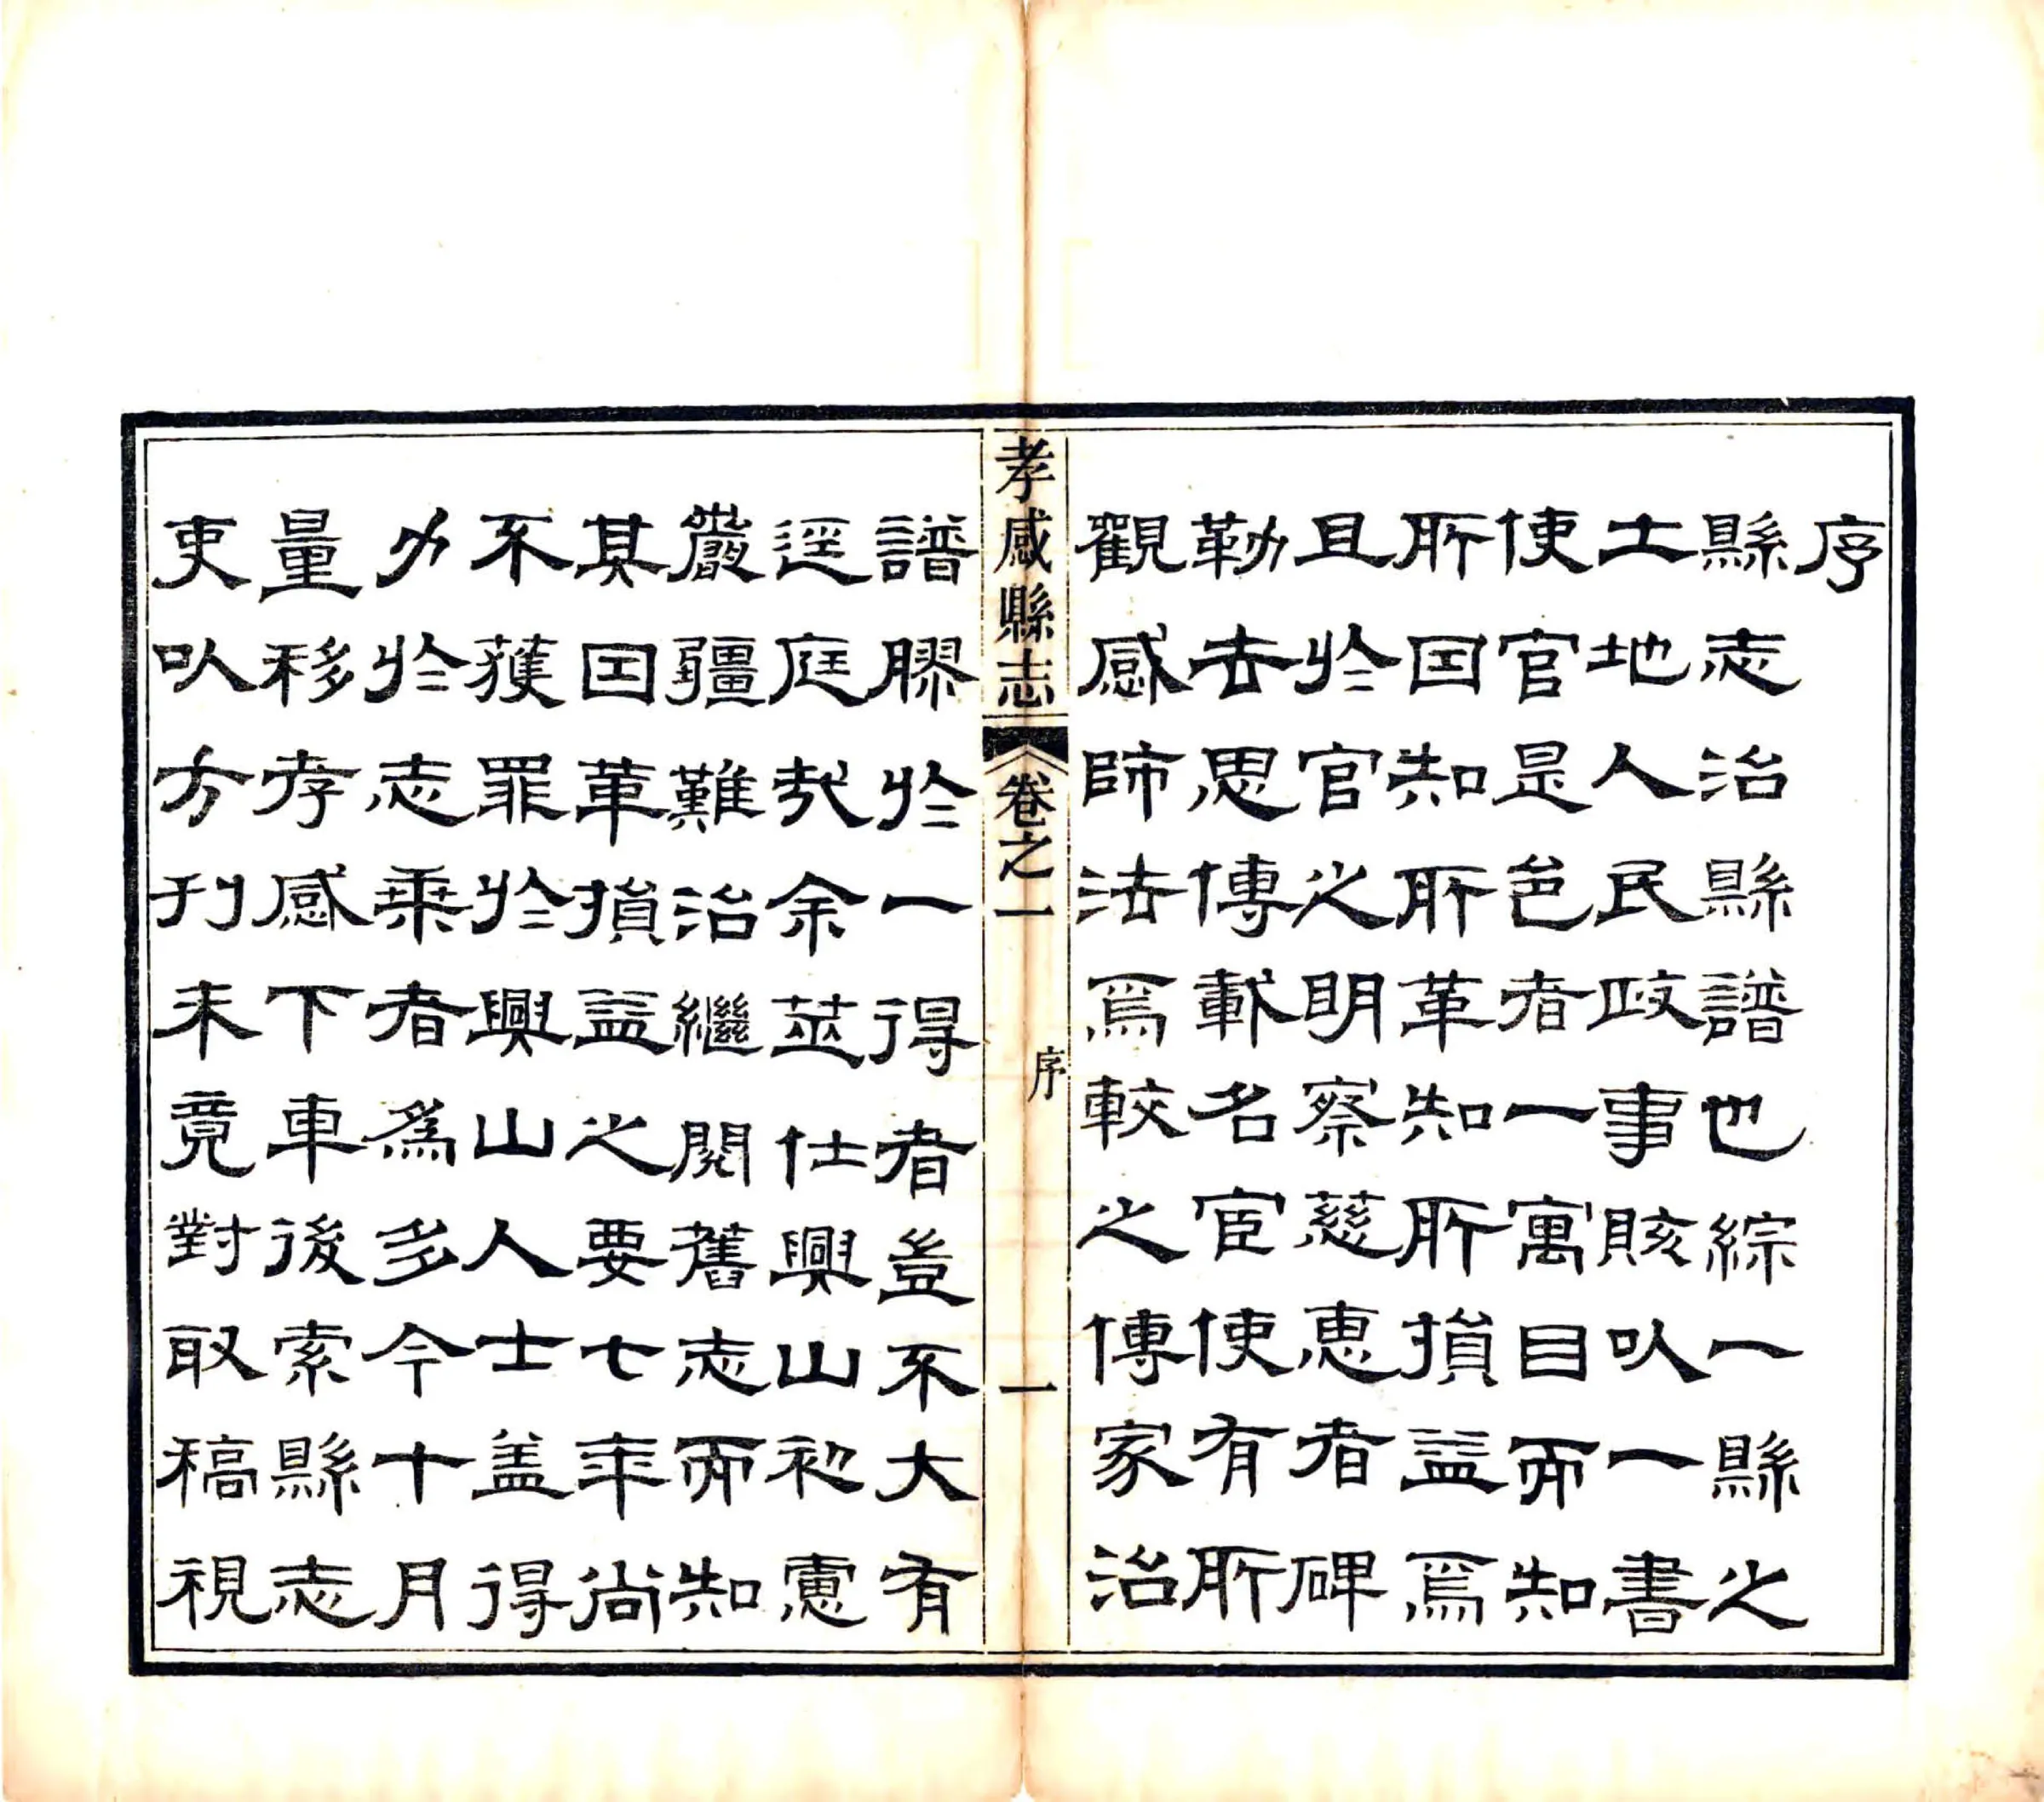 序
縣志治縣譜也綜一縣之
土地人民政事賅以一書
使官是邑者一寓目而知
所因知所革知所損益焉
且於官之明察慈惠者碑
勒去思傳載名宦使有所
觀感師法焉較之傳家治
孝感縣志
卷之一
序
一
譜膠於一得者豈不大有
逕庭哉余莅仕興山初慮
嚴疆難治繼閱舊志而知
其因革損益之要七年尚
不獲罪於興山人士盖得
力於志乘者為多今十月
量移孝感下車後索縣志
吏以方刊未竟對取稿視